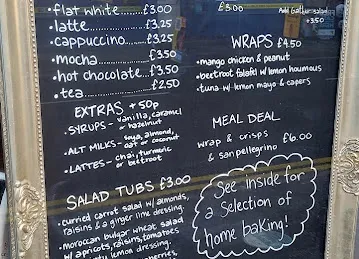 • flat white........£3.00
• latte...............£3.25
• cappuccino.....£3.25
• mocha............£3.50
• hot chocolate.£3.50
• tea................£2.50
EXTRAS + 50p
• SYRUPS - vanilla, caramel
or hazelnut
• ALT MILKS - soya, almond,
oat or coconut
• LATTES - chai, turmeric
or beetroot
SALAD TUBS £3.00
• curried carrot salad w/ almonds,
raisins & a ginger lime dressing.
• moroccan bulgar wheat salad
w/ apricots, raisins, tomatoes
lemon dressing.
£3.00
Add salad
+3.50
WRAPS £4.50
• mango chicken & peanut
• beetroot falafel w/ lemon houmous
• tuna w/ lemon mayo & capers
MEAL DEAL
wrap & crisps £6.00
& sanpellegrino
See inside for
a selection of
home baking!